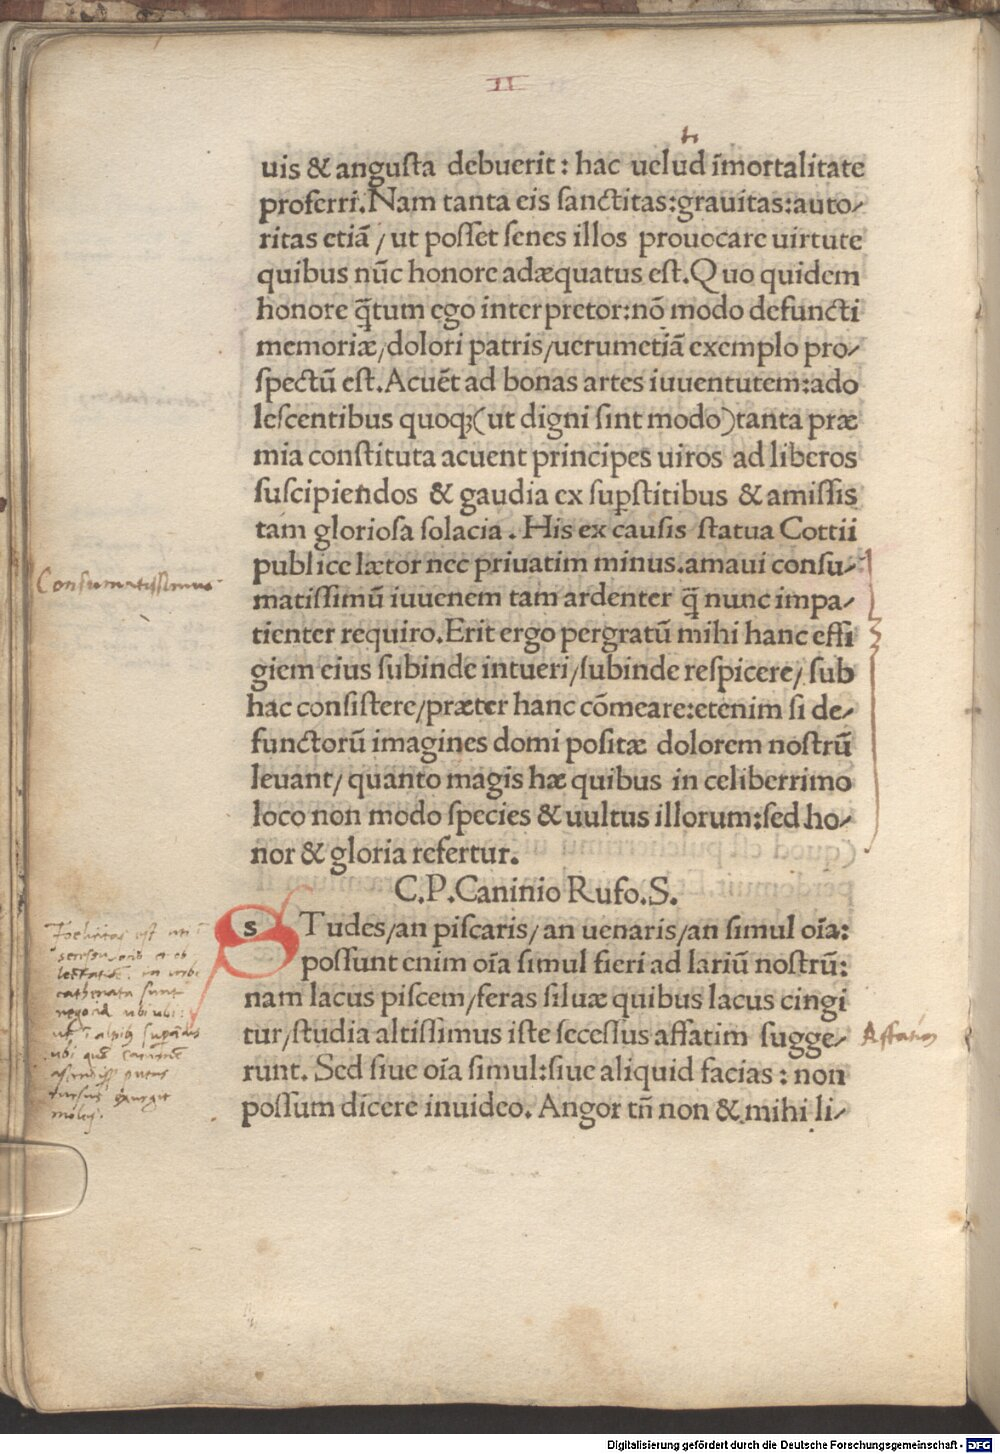 II
uis & angusta debuerit : hac uelud īmortalitate
proferri. Nam tanta eis sanctitas:grauitas:auto⸗
ritas etiā / ut posset senes illos prouocare uirtute
quibus nūc honore adæquatus est. Quo quidem
honore q̄tum ego interpretor:nō modo defuncti
memoriæ/dolori patris/uerumetiā exemplo pro⸗
spectū est. Acuēt ad bonas artes iuuentutem:ado
lescentibus quoqꝫ(ut digni sint modo)tanta præ
mia constituta acuent principes uiros ad liberos
suscipiendos & gaudia ex suꝑstitibus & amissis
tam gloriosa solacia . His ex causis statua Cottii
publice lætor nec priuatim minus.amaui consu⸗
Consumatissimus
matissimū iuuenem tam ardenter q̄ nunc impa⸗
tienter requiro. Erit ergo pergratū mihi hanc effi
giem eius subinde intueri/subinde respicere/ sub
hac consistere/præter hanc cōmeare:etenim si de⸗
functorū imagines domi positæ dolorem nostrū
leuant/ quanto magis hæ quibus in celiberrimo
loco non modo species & uultus illorum:sed ho⸗
nor & gloria refertur.
C.P.Caninio Rufo.S.
sTudes/an piscaris/an uenaris/an simul oīa:
possunt enim oīa simul fieri ad lariū nostrū:
nam lacus piscem/feras siluæ quibus lacus cingi
tur/studia altissimus iste secessus affatim sugge⸗
Affatim
runt. Sed siue oīa simul:siue aliquid facias : non
possum dicere inuideo. Angor tn̄ non & mihi li⸗
Digitalisierung gefördert durch die Deutsche Forschungsgemeinschaft - DFG